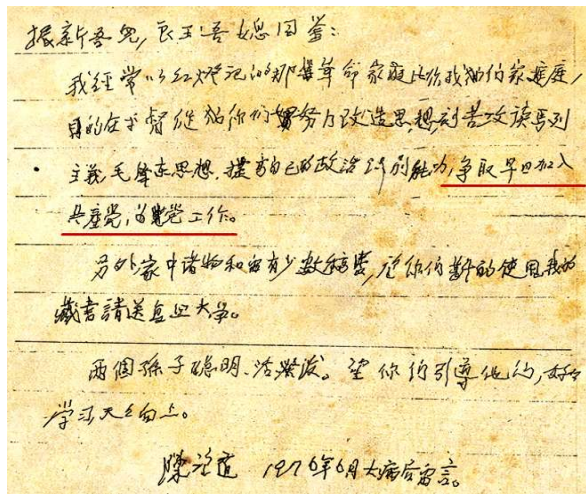 振新吾儿，良玉吾媳同鉴：
我經常以红燈记的那樣革命家庭比你我们的家庭，
目的在于督促你们努力改造思想刻苦攻读马列
主義毛澤东思想，提高自己的政治识别能力，争取早日加入
共產党，为党工作。
另外家中诸物和留有少数稿费，你们的使用我的
藏書請送复旦大学。
两個孫子聪明、活潑。望你们引導他们，好好
学习天天向上。
陳望道 1976年6月大病后留言。